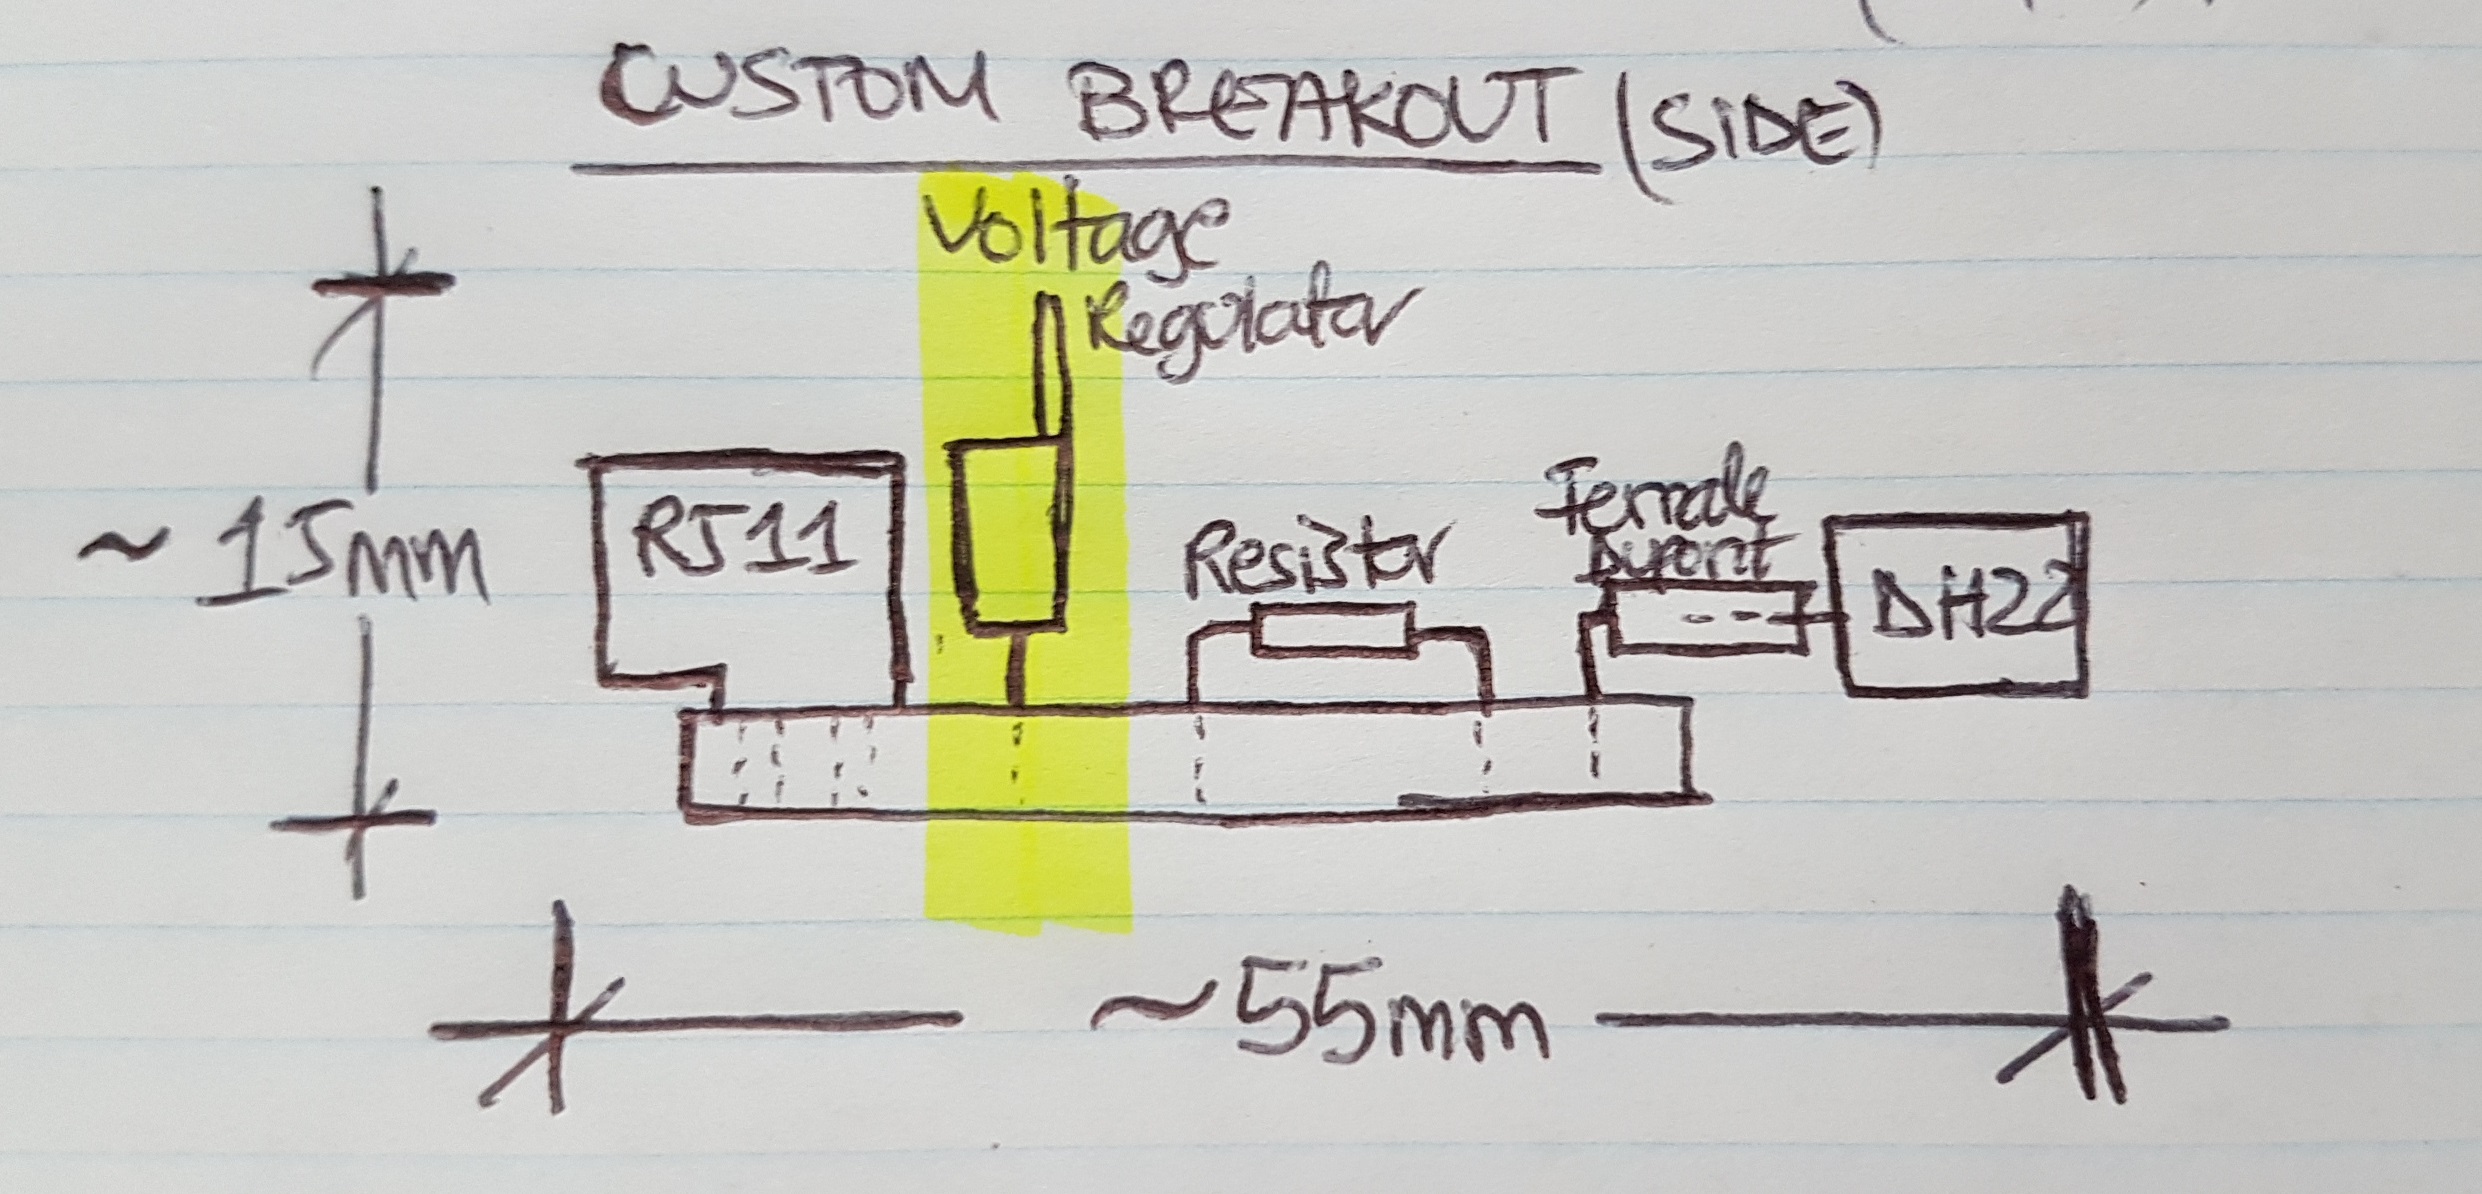 CUSTOM BREAKOUT (SIDE)
Voltage
Regulator
~15mm
RJ11
Resistor
Female
Dupont
DH22
~55mm